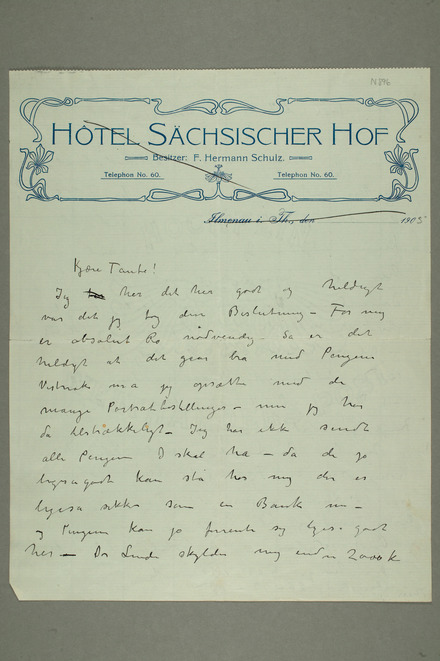 N 896
HÔTEL SÄCHSISCHER HOF
Besitzer: F. Hermann Schulz.
Telephon No. 60. Telephon No. 60.
Ilmenau i. Th., den 1905
Kjære Tante!
Jeg har det her godt og heldigt
var det jeg tog den Beslutning – For mig
er absolut Ro nødvendig. Så er det
heldigt at det gaar bra med Pengene
Vistnok maa jeg opsætte med de
mange Portrætbestillinger – men jeg har
da tilstrækkeligt – Jeg har ikke sendt
alle Pengene I skal ha – da de jo
ligesågodt kan stå hos mig der er
ligeså sikker som en Bank
og Pengene kan jo forrente sig ligeså godt
her – Dr Linde skylder mig endnu 2000 K